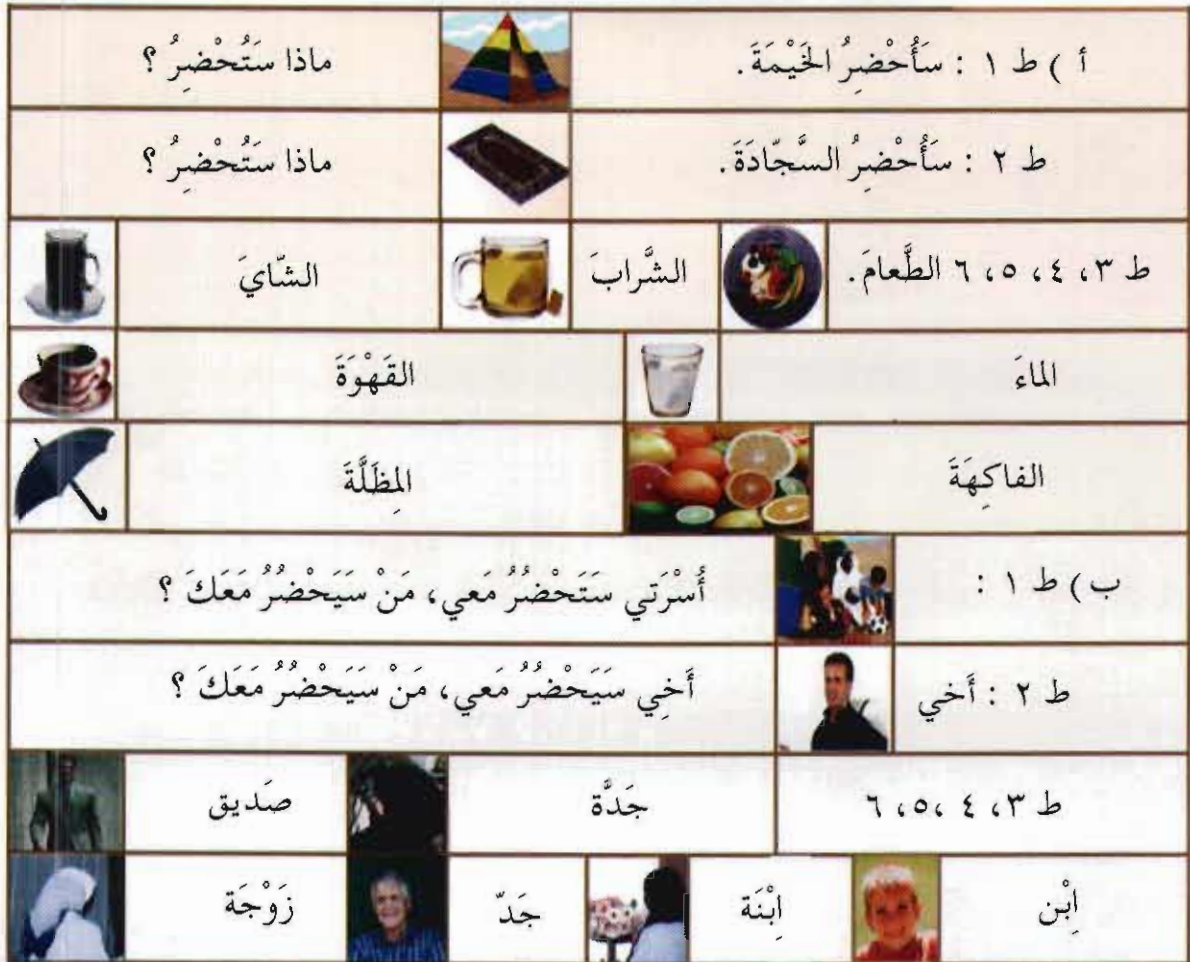 أ ) ط ١ : سَأُحْضِرُ الخَيْمَةَ . ماذا سَتُحْضِرُ ؟
ط ٢ : سَأُحْضِرُ السَّجّادَةَ . ماذا سَتُحْضِرُ ؟
ط ٣، ٤، ٥، ٦ الطَّعامَ . الشَّرابَ الشّايَ
الماءَ القَهْوَةَ
الفاكِهَةَ المِظَلَّةَ
ب ) ط ١ : أُسْرَتي سَتَحْضُرُ مَعي، مَنْ سَيَحْضُرُ مَعَكَ ؟
ط ٢ : أَخي أَخِي سَيَحْضُرُ مَعي، مَنْ سَيَحْضُرُ مَعَكَ ؟
ط ٣، ٤ ،٥، ٦ جَدَّة صَديق
اِبْن اِبْنَة جَدّ زَوْجَة